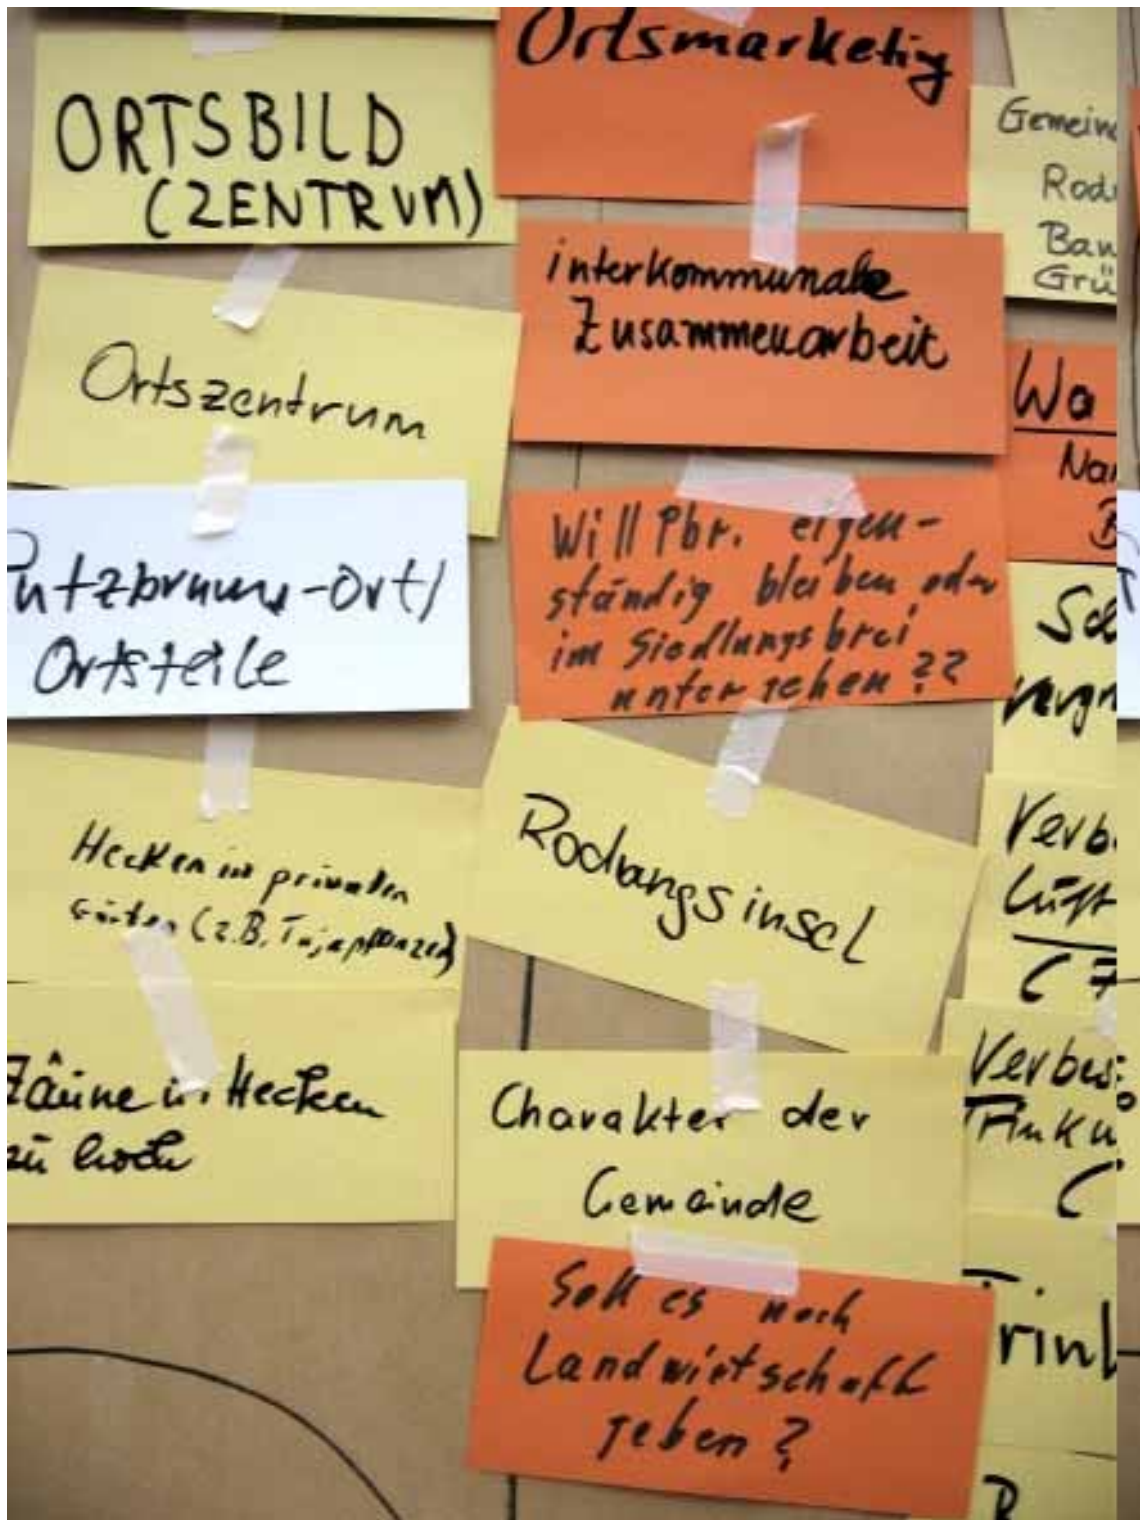 ORTSBILD
(ZENTRUM)
Ortszentrum
Putzbrunn-Ort/
Ortsteile
Hecken in privaten
Gärten (z.B. Tujapflanzen)
Zäune u. Hecken
zu hoch
Ortsmarketing
interkommunale
Zusammenarbeit
Will Pbr. eigen-
ständig bleiben, oder
im Siedlungsbrei
untergehen??
Rodungsinsel
Charakter der
Gemeinde
Soll es noch
Landwirtschaft
geben?
Gemein
Rod
Grü
Wa
Verb
Luft
Verbes
Trink